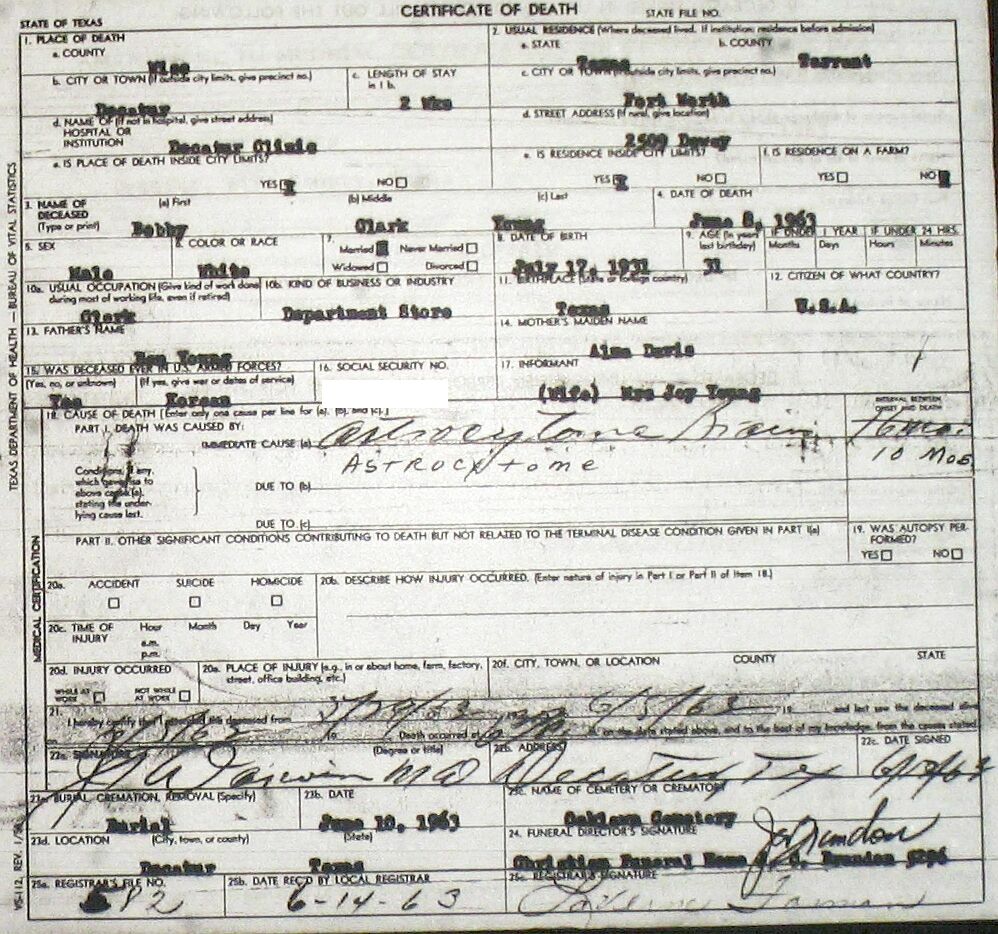 CERTIFICATE OF DEATH
STATE OF TEXAS STATE FILE NO.
1. PLACE OF DEATH
a. COUNTY
Wise
2. USUAL RESIDENCE (Where deceased lived. If institution: residence before admission)
a. STATE b. COUNTY
Texas Tarrant
b. CITY OR TOWN (If outside city limits, give precinct no.)
Decatur
c. LENGTH OF STAY in 1 b.
2 Wks
c. CITY OR TOWN (If outside city limits, give precinct no.)
Fort Worth
d. NAME OF (If not in hospital, give street address)
HOSPITAL OR
INSTITUTION
Decatur Clinic
d. STREET ADDRESS (If rural, give location)
2509 Dewey
e. IS PLACE OF DEATH INSIDE CITY LIMITS?
YES X NO
e. IS RESIDENCE INSIDE CITY LIMITS?
YES X NO
f. IS RESIDENCE ON A FARM?
YES NO
3. NAME OF DECEASED (Type or print)
(a) First (b) Middle (c) Last
Bobby Clark Young
4. DATE OF DEATH
June 8, 1963
5. SEX
Male
6. COLOR OR RACE
White
7. Married Never Married
Widowed Divorced
8. DATE OF BIRTH
July 17, 1931
9. AGE (In years last birthday)
31
IF UNDER 1 YEAR
Months Days
IF UNDER 24 HRS.
Hours Minutes
10a. USUAL OCCUPATION (Give kind of work done during most of working life, even if retired)
Clerk
10b. KIND OF BUSINESS OR INDUSTRY
Department Store
11. BIRTHPLACE (State or foreign country)
Texas
12. CITIZEN OF WHAT COUNTRY?
U.S.A.
13. FATHER'S NAME
Ben Young
14. MOTHER'S MAIDEN NAME
Alma Davis
15. WAS DECEASED EVER IN U.S. ARMED FORCES?
(Yes, no, or unknown) (If yes, give war or dates of service)
Yes Korean
16. SOCIAL SECURITY NO.
17. INFORMANT
(Wife) Mrs Joy Young
18. CAUSE OF DEATH [Enter only one cause per line for (a), (b), and (c).]
INTERVAL BETWEEN ONSET AND DEATH
PART I. DEATH WAS CAUSED BY:
IMMEDIATE CAUSE (a) astrocytome Brain
ASTROCYtome
10 Mos
Conditions, if any,
which gave rise to
above cause (a),
stating the under-
lying cause last.
DUE TO (b)
DUE TO (c)
PART II. OTHER SIGNIFICANT CONDITIONS CONTRIBUTING TO DEATH BUT NOT RELATED TO THE TERMINAL DISEASE CONDITION GIVEN IN PART I(a)
19. WAS AUTOPSY PERFORMED?
YES NO
20a. ACCIDENT SUICIDE HOMICIDE
20b. DESCRIBE HOW INJURY OCCURRED. (Enter nature of injury in Part I or Part II of Item 18.)
20c. TIME OF INJURY
Hour Month Day Year
a.m.
p.m.
20d. INJURY OCCURRED
WHILE AT WORK NOT WHILE AT WORK
20e. PLACE OF INJURY (e.g., in or about home, farm, factory, street, office building, etc.)
20f. CITY, TOWN, OR LOCATION COUNTY STATE
21.
I hereby certify that I attended the deceased from to 19 and last saw the deceased alive
Death occurred at on the date stated above, and to the best of my knowledge, from the causes stated.
22a. SIGNATURE (Degree or title)
MD
22b. ADDRESS
Decatur, Tex
22c. DATE SIGNED
23a. BURIAL, CREMATION, REMOVAL (Specify)
Burial
23b. DATE
June 10, 1963
23c. NAME OF CEMETERY OR CREMATORY
Oaklawn Cemetery
23d. LOCATION (City, town, or county) (State)
Decatur Texas
24. FUNERAL DIRECTOR'S SIGNATURE
Christian Funeral Home
25a. REGISTRAR'S FILE NO.
25b. DATE REC'D BY LOCAL REGISTRAR
6-14-63
25c. REGISTRAR'S SIGNATURE
TEXAS DEPARTMENT OF HEALTH — BUREAU OF VITAL STATISTICS
MEDICAL CERTIFICATION